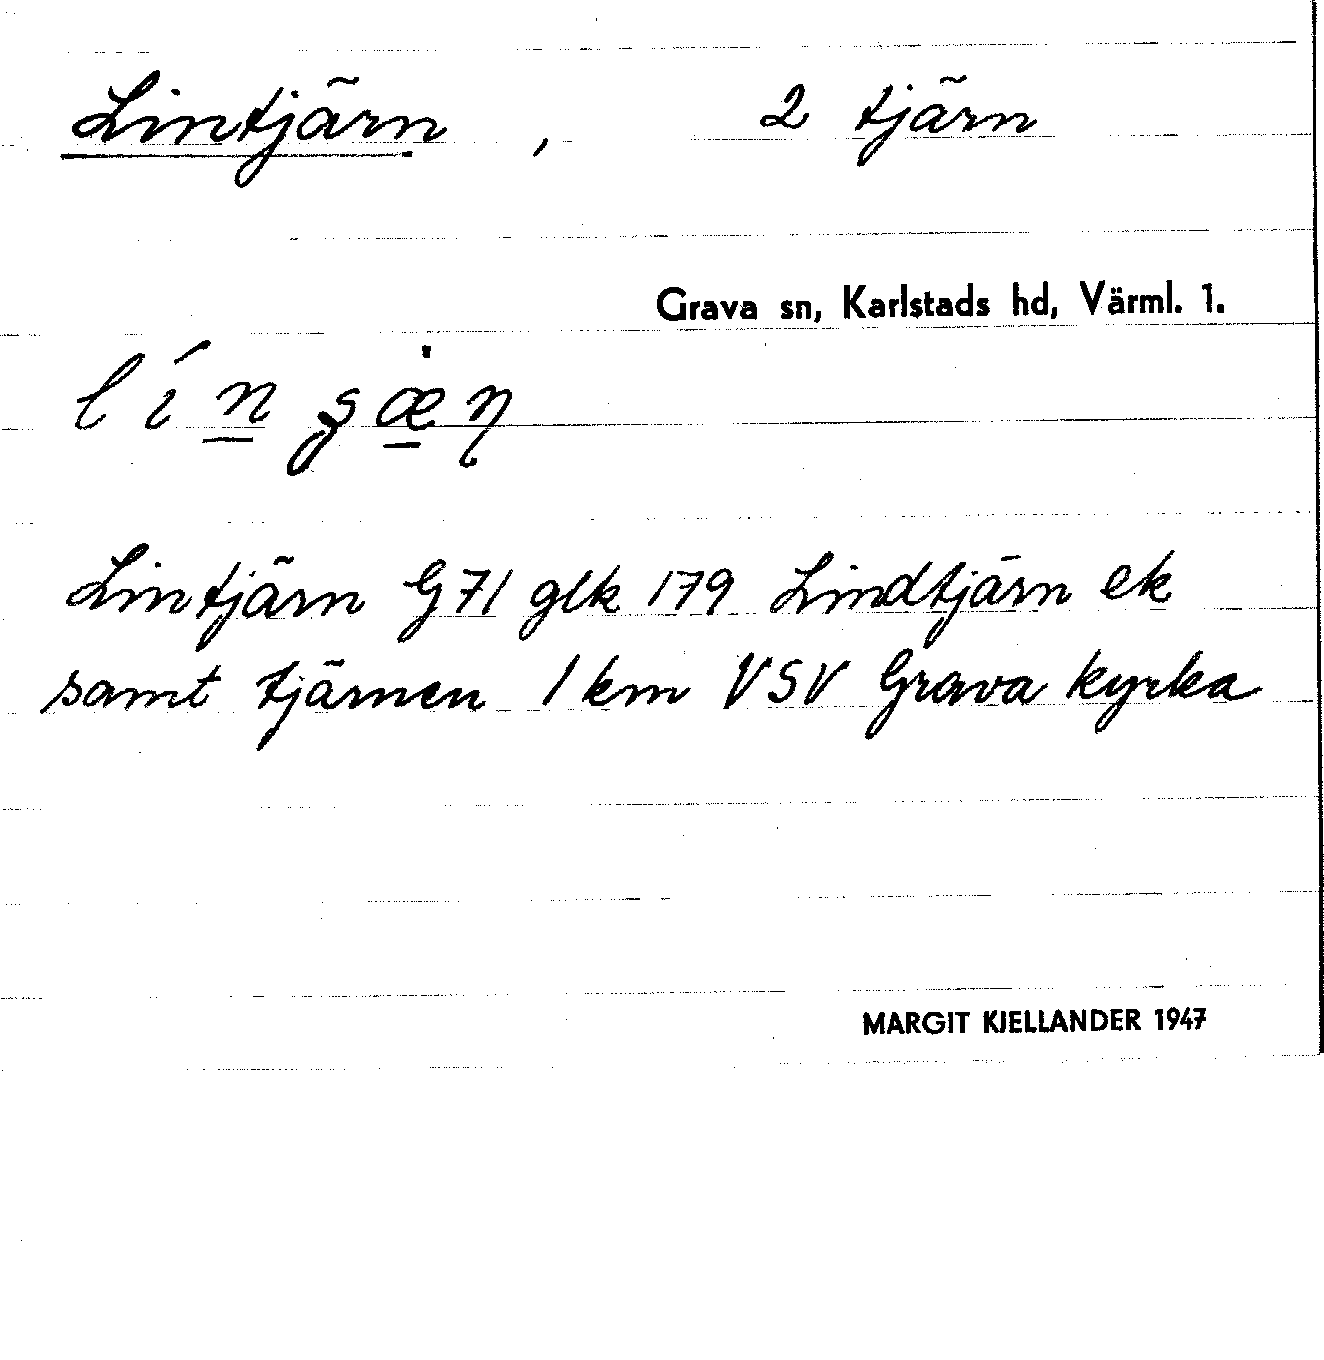 Lintjärn , 2 tjärn
Grava sn, Karlstads hd, Värml. 1.
Lintjärn G71 glk 179 Lindtjärn ek
samt tjärnen 1 km VSV Grava kyrka
MARGIT KJELLANDER 1947